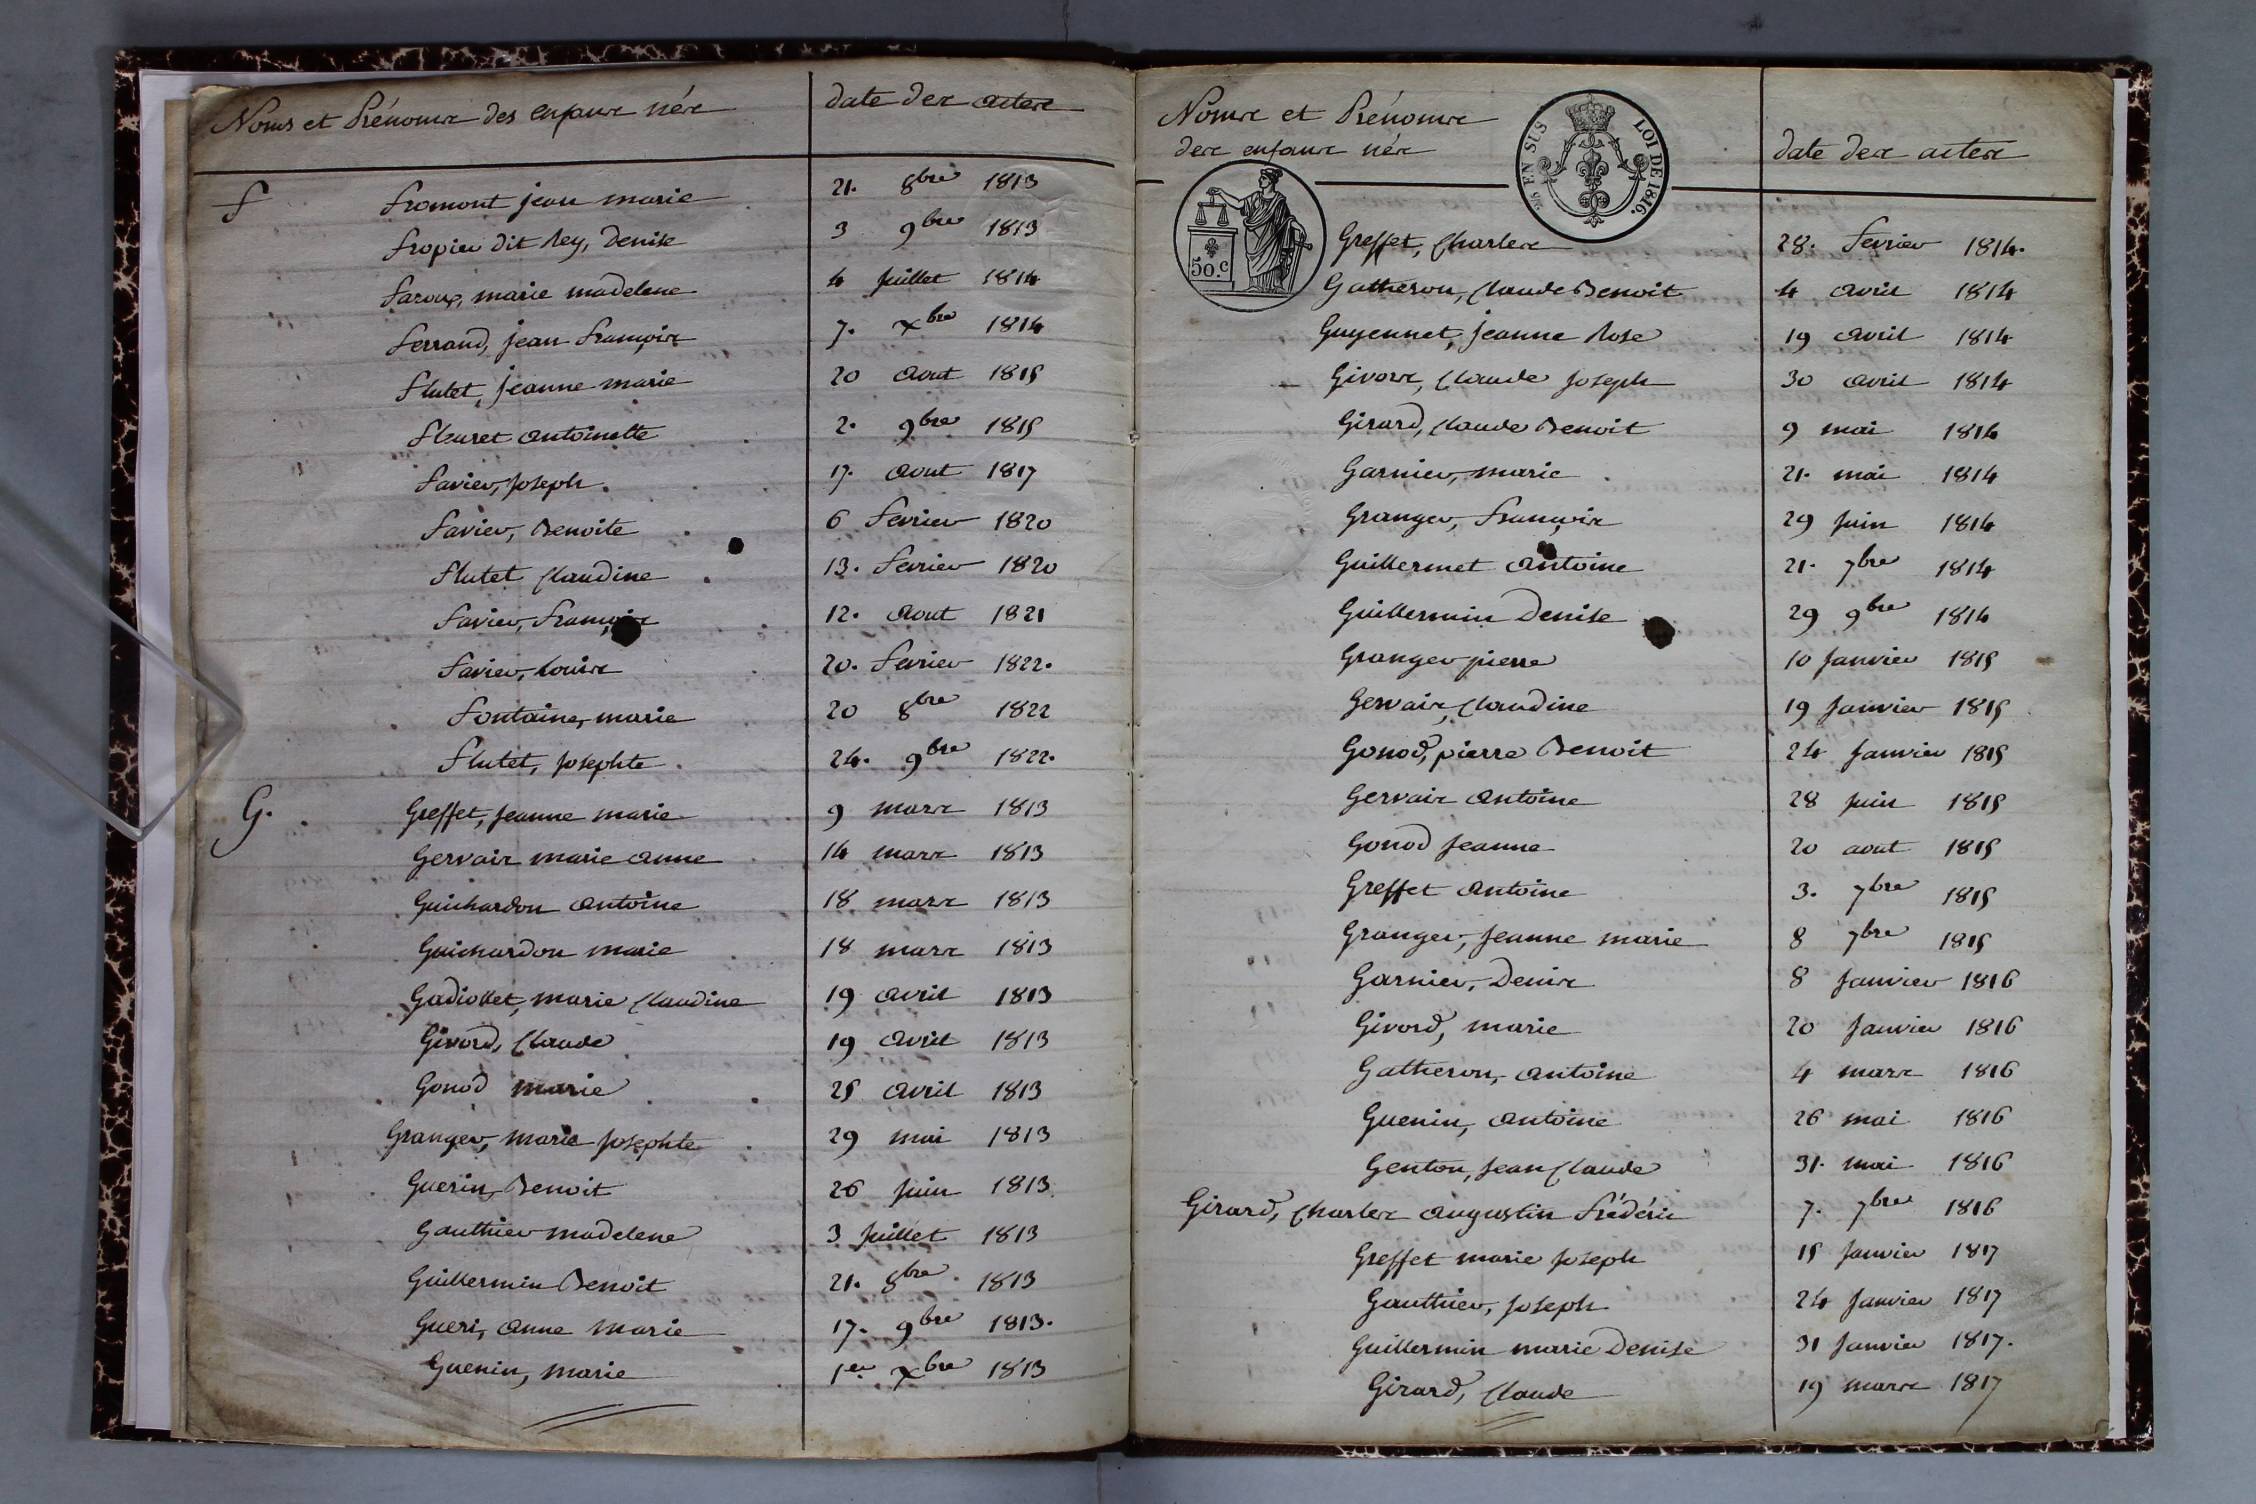 Noms et Prénoms des enfans nés date des actes
F Fromont jean marie 21. 8bre 1813
Fropier dit Rey, Denise 3 9bre 1813
Faroux, marie madelene 4 juillet 1814
Ferrand, jean François 7. xbre 1814
Flutet, jeanne marie 20 aout 1815
Fleuret antoinette 2. 9bre 1815
Favier, joseph 17. aout 1817
Favier, Benoite 6 fevrier 1820
Flutet Claudine 13. fevrier 1820
Favier, François 12. aout 1821
Favier, Louis 20. fevrier 1822.
Fontaine, marie 20 8bre 1822
Flutet, josephte 24. 9bre 1822.
G. Greffet, jeanne marie 9 mars 1813
Gervais marie anne 14 mars 1813
Guichardon antoine 18 mars 1813
Guichardon marie 18 mars 1813
Gadiollet, marie Claudine 19 avril 1813
Givord, Claude 19 avril 1813
Gonod marie 25 avril 1813
Granger, marie josephte 29 mai 1813
Guerin, Benoit 26 juin 1813
Gauthier madelene 3 juillet 1813
Guillermin Benoit 21. 8bre 1813
Gueri, anne marie 17. 9bre 1813.
Guenin, marie 1er xbre 1813
Noms et Prénoms
des enfans nés date des actes
EN SUS LOI DE 1816.
50.c
Greffet, Charles 28. fevrier 1814.
Gatheron, Claude Benoit 4 avril 1814
Guyennet, jeanne Rose 19 avril 1814
Givors, Claude joseph 30 avril 1814
Girard, Claude Benoit 9 mai 1814
Garnier, marie 21. mai 1814
Granger, François 29 juin 1814
Guillermet antoine 21. 7bre 1814
Guillermin Denise 29 9bre 1814
Granger pierre 10 janvier 1815
Gervais, Claudine 19 janvier 1815
Gonod, pierre Benoit 24 janvier 1815
Gervais antoine 28 juin 1815
Gonod jeanne 20 aout 1815
Greffet antoine 3. 7bre 1815
Granger, jeanne marie 8 7bre 1815
Garnier, Denis 8 janvier 1816
Givord, marie 20 janvier 1816
Gatheron, antoine 4 mars 1816
Guenin, antoine 26 mai 1816
Genton, jean Claude 31. mai 1816
Girard, Charles augustin frédéric 7. 7bre 1816
Greffet marie joseph 15 janvier 1817
Gauthier, joseph 24 janvier 1817
Guillermin marie Denise 31 janvier 1817.
Girard, Claude 19 mars 1817